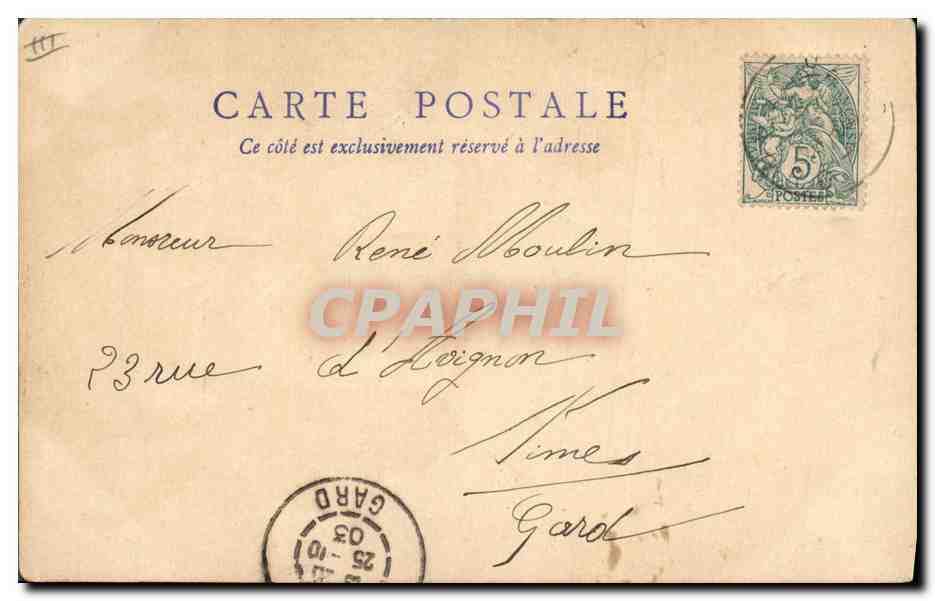 CARTE POSTALE
Ce côté est exclusivement réservé à l'adresse
5c
POSTES
Monsieur René Moulin
CPAPHIL
23 rue d'Avignon
Nimes
Gard
GARD
03
25